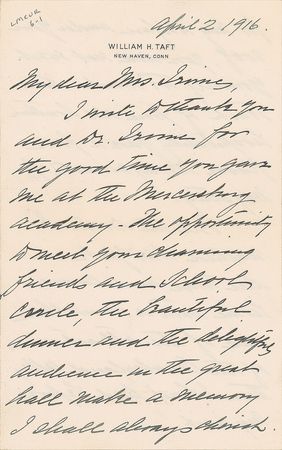 April 2 1916.
LMCUR
6-1
WILLIAM H. TAFT
NEW HAVEN, CONN
My dear Mrs. Irvine,
I write to thank you
and Dr. Irvine for
the good time you gave
me at the Mercersburg
academy - The opportunity
to meet your charming
friends and School
Circle, the beautiful
dinner and the delightful
audience in the great
hall make a memory
I shall always cherish.